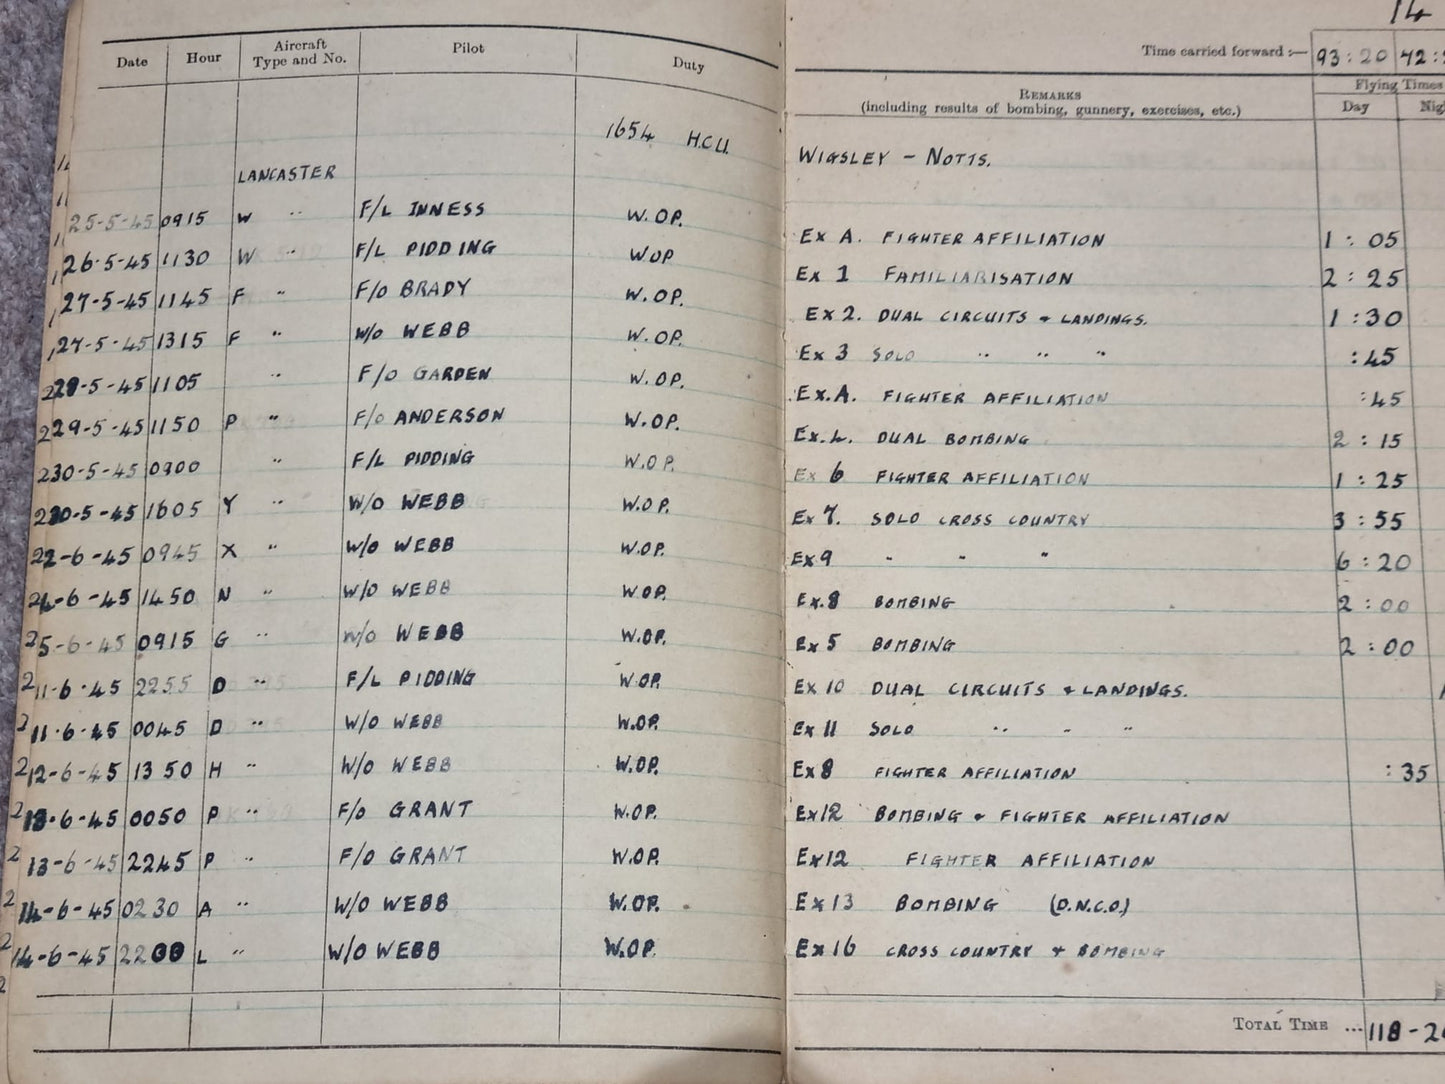 14
Time carried forward :— 93:20 42:
Date Hour Aircraft Type and No. Pilot Duty REMARKS (including results of bombing, gunnery, exercises, etc.) Flying Times Day
1654 H.C.U. WIGSLEY – NOTTS.
LANCASTER
25-5-45 0915 W " F/L INNESS W.OP. Ex A. FIGHTER AFFILIATION 1:05
26-5-45 1130 W " F/L PIDDING WOP Ex 1 FAMILIARISATION 2:25
27-5-45 1145 F " F/O BRADY W.OP. Ex 2. DUAL CIRCUITS & LANDINGS. 1:30
27-5-45 1315 F " W/O WEBB W.OP. Ex 3 SOLO " " " :45
-5-45 1105 " F/O GARDEN W.OP. Ex.A. FIGHTER AFFILIATION :45
29-5-45 1150 P " F/O ANDERSON W.OP. Ex.4. DUAL BOMBING 2:15
30-5-45 0900 " F/L PIDDING W.OP. Ex 6 FIGHTER AFFILIATION 1:25
30-5-45 1605 Y " W/O WEBB W.OP. Ex 7. SOLO CROSS COUNTRY 3:55
2-6-45 0945 X " W/O WEBB W.OP. Ex 9 " " " 6:20
4-6-45 1450 N " W/O WEBB W.OP. Ex.8 BOMBING 2:00
5-6-45 0915 G " W/O WEBB W.OP. Ex 5 BOMBING 2:00
11-6-45 2255 D " F/L PIDDING W.OP. Ex 10 DUAL CIRCUITS & LANDINGS.
11-6-45 0045 D " W/O WEBB W.OP. Ex 11 SOLO " " "
12-6-45 1350 H " W/O WEBB W.OP. Ex 8 FIGHTER AFFILIATION :35
13-6-45 0050 P " F/O GRANT W.OP. Ex12 BOMBING & FIGHTER AFFILIATION
13-6-45 2245 P " F/O GRANT W.OP. Ex12 FIGHTER AFFILIATION
14-6-45 0230 A " W/O WEBB W.OP. Ex 13 BOMBING (D.N.C.O.)
14-6-45 2200 L " W/O WEBB W.OP. Ex 16 CROSS COUNTRY & BOMBING
TOTAL TIME ... 118-2